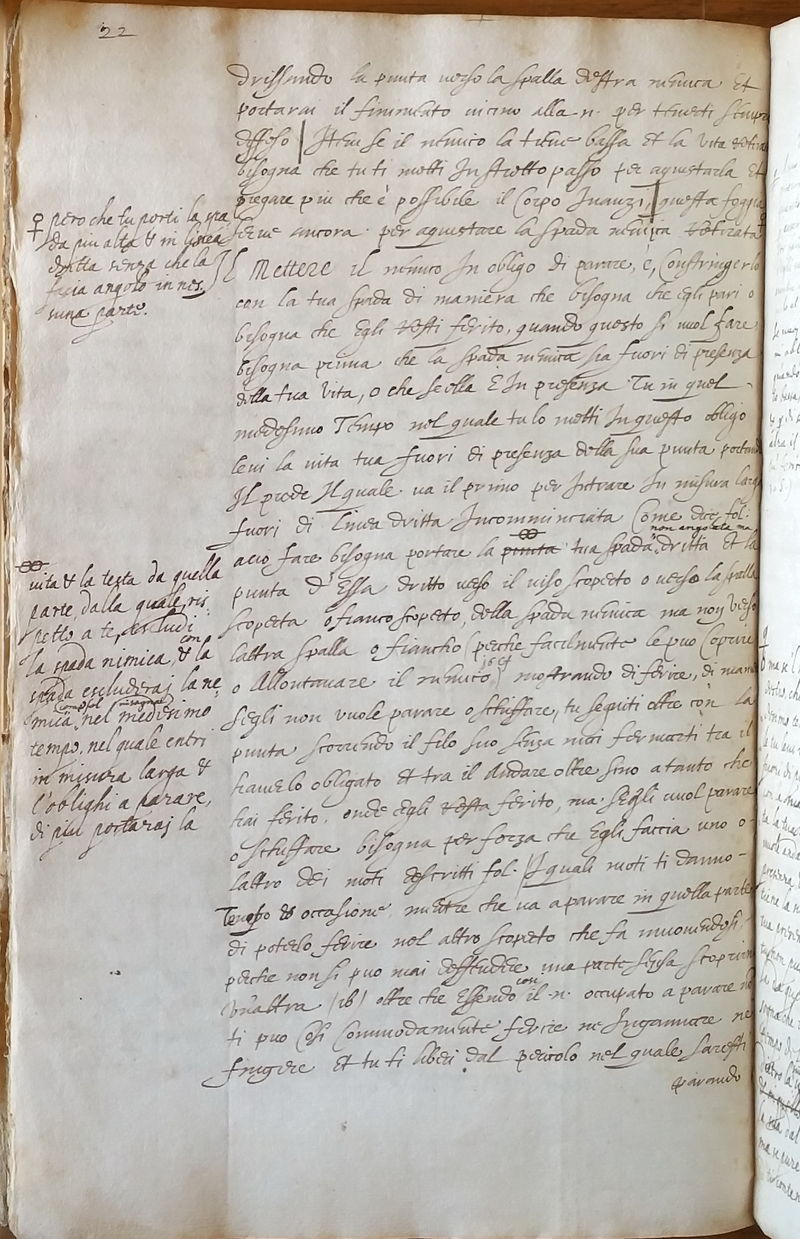 22
drissando la punta verso la spalla destra nimica et
portarai il finimento vicino alla n. per tenerti sempre
diffeso Item se il nimico la tiene bassa et la vita retirata
bisogna che tu ti metti In stretto passo per aquistarla et
piegare piu che è possibile il Corpo Inanzi, questa foggia
serve ancora per aquistare la spada nimica retirata
Il Mettere il nimico In obligo di parare, è, Constringerlo
con la tua spada di maniera che bisogna che egli pari o
bisogna che egli resti ferito, quando questo si vuol fare
bisogna prima che la spada nimica sia fuori di presenza
della tua Vita, o che se ella è In presenza Tu in quel
medesimo Tempo nel quale tu lo metti In questo obligo
levi la vita tua fuori di presenza della sua punta portando
Il piede Il quale va il primo per Intrare In misura larga
fuori di linea dritta Incomminciata Come dice fol.
non angolata ma
a cio fare bisogna portare la punta tua spada dritta et la
punta d'Essa dritto verso il viso scoperto o verso la spalla
scoperta o fianco scoperto, della spada nimica ma non verso
l'altra spalla o fiancho (perche facilmente le puo Coprire
o Allontanare il nimico) mostrando di ferire, di mani
Segli non vuole parare o schiffare, tu seguiti oltre con la
punta scorrendo il filo suo senza mai fermarti tra il
haverlo obligato et tra il Andare oltre sino a tanto che
hai ferito, onde egli resta ferito, ma segli vuol parare
o schiffare bisogna per forza che Egli faccia uno o
l'altro dei moti descritti fol. I quali moti ti danno
Tempo et occasione mentre che va a parare in quella parte
di poterlo ferire nel altro scoperto che fa movendosi
perche non si puo mai diffendere una parte senza scoprire
un'altra (ib) oltre che Essendo il n. occupato a parare non
con
ti puo Cosi Commodamente ferire ne Ingannare ne
fingere et tu ti liberi dal pericolo nel quale saresti
parando
pero che tu porti la spa
da piu alta & in linea
dritta senza che la
facia angolo in nes
suna parte.
vita & la testa da quella
parte, dalla quale, ris
petto a te, escludi
con
la spada nimica, & la
spada escluderai la ne
mica, nel medesimo
tempo, nel quale entri
in misura larga &
l'oblighi a parare,
di piu portarai la